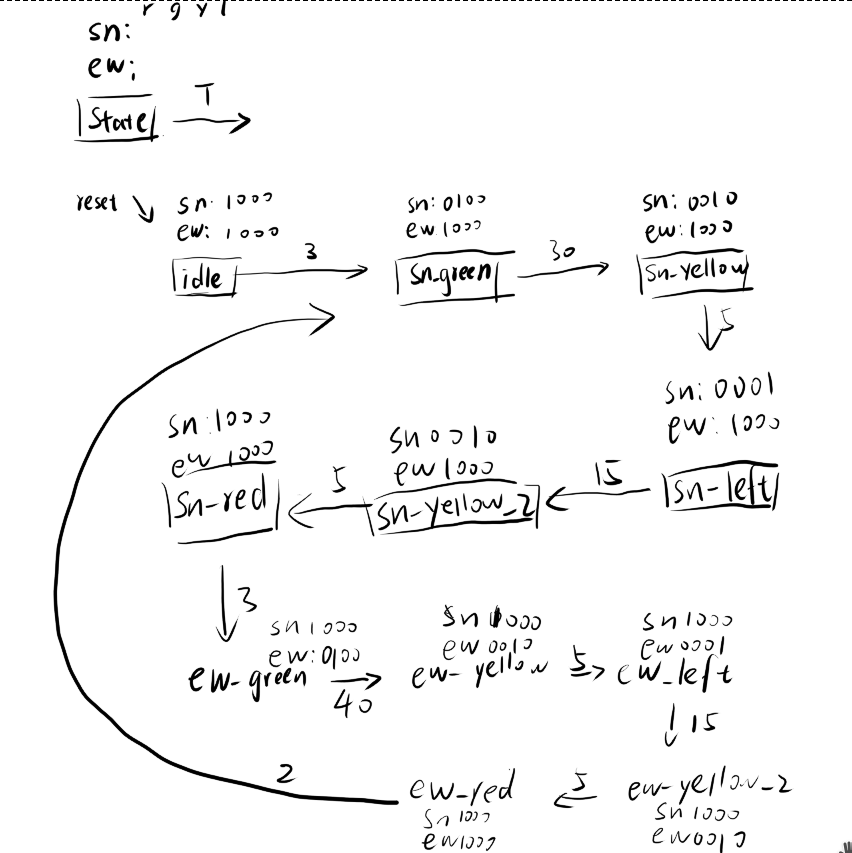 r g y l
sn:
ew:
State
T
reset
sn: 1000
ew: 1000
idle
3
sn: 0100
ew 1000
sn_green
30
sn: 0010
ew: 1000
sn-yellow
5
sn: 0001
ew: 1000
sn-left
15
sn 0010
ew 1000
sn-yellow_2
5
sn: 1000
ew 1000
sn-red
3
sn 1000
ew: 0100
ew-green
40
sn 1000
ew 0010
ew-yellow
5
sn 1000
ew 0001
ew_left
15
ew-yellow_2
sn 1000
ew 0010
5
ew_red
sn 1000
ew 1000
2